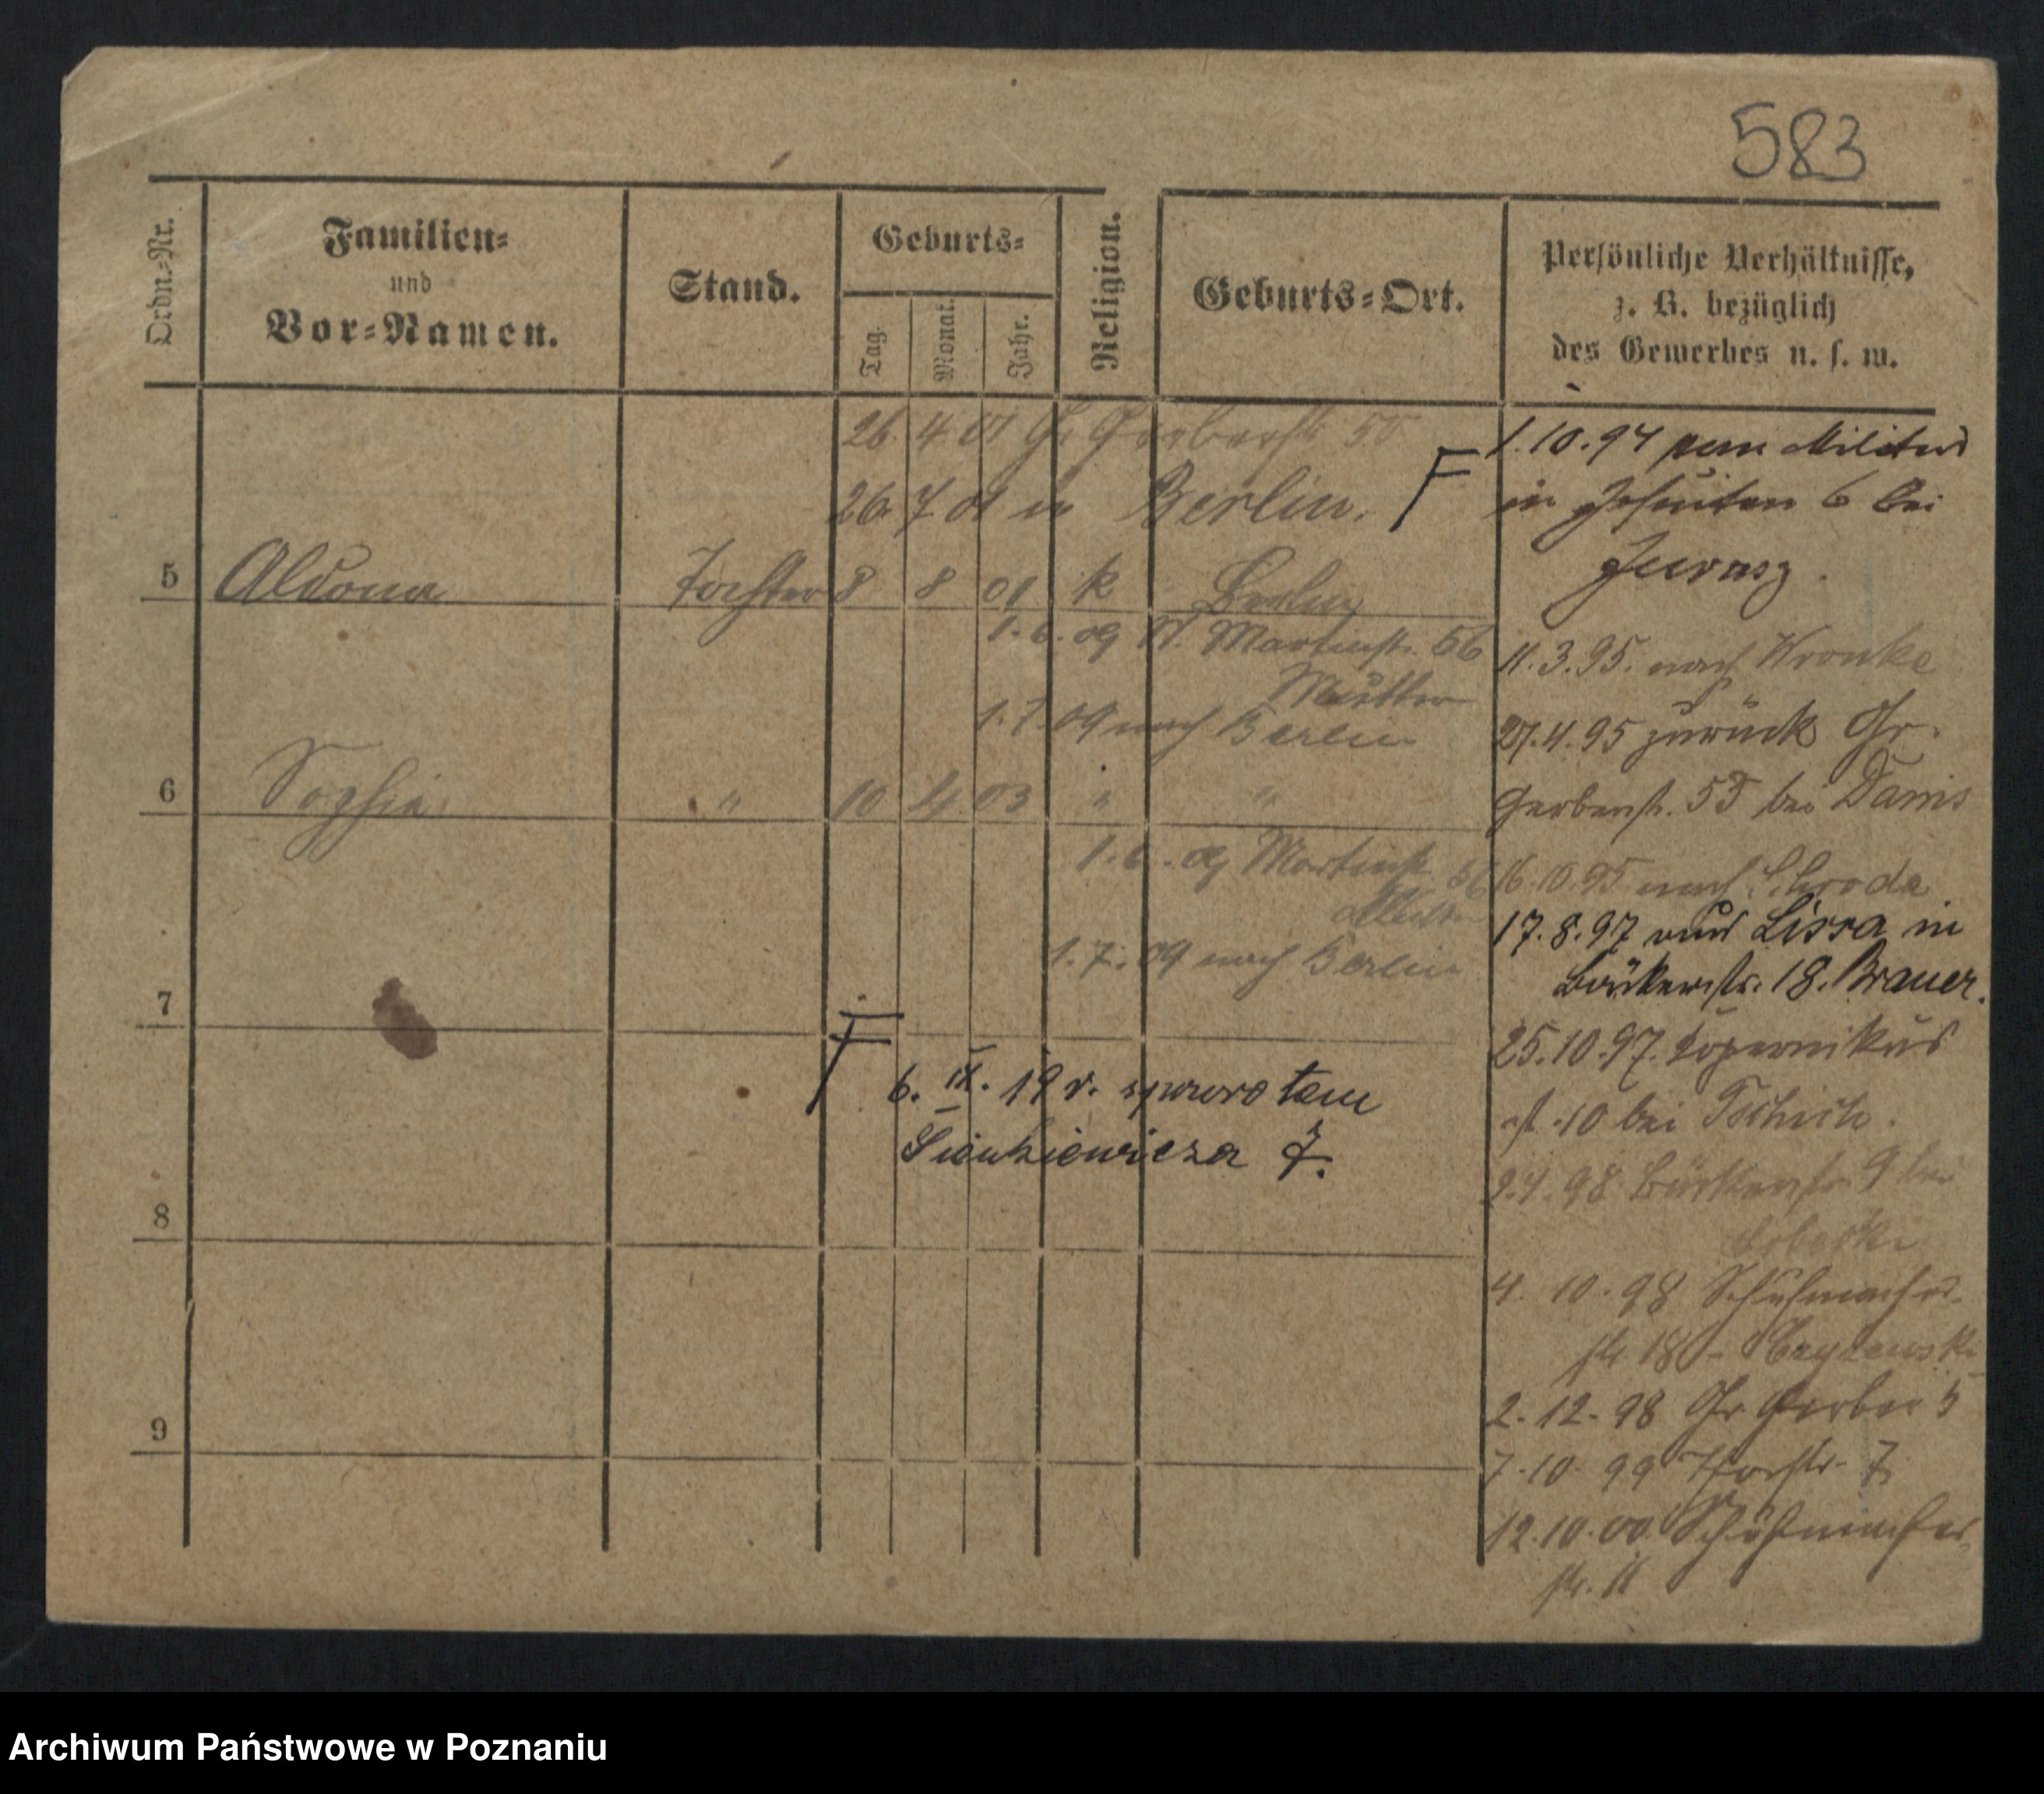 583
Ordn.-Nr.
Familien-
und
Vor-Namen.
Stand.
Geburts-
Tag.
Monat.
Jahr.
Religion.
Geburts-Ort.
Persönliche Verhältnisse,
z. B. bezüglich
des Gewerbes u. s. w.
26. 4 01 Gr. Gerberstr. 50
26. 7 01 in Berlin.
5 Aldona Tochter 8 8 01 k Berlin
1. 6. 09 St. Martinstr. 56
Mutter
1. 7. 09 nach Berlin
6 Sophia " 10 4 03 " "
1. 6. 09 Martinstr. 56
Mutter
1. 7. 09 nach Berlin
7
F 6. IX. 19 r. spowrotem
Sienkiewicza 7.
8
9
F 1. 10. 94 vom Militär
in Jesuiten 6 bei
Jurasz.
11. 3. 95. nach Wronke
27. 4. 95 zurück Gr.
Gerberstr. 55 bei Danis
16. 10. 95 nach Schroda
17. 8. 97 aus Lissa in
Bäckerstr. 18. Brauer.
25. 10. 97. Kopernikus
str. 10 bei
2. 4. 98 Bäckerstr. 9 bei
4. 10. 98 Schuhmacher-
str. 18
2. 12. 98 Gr. Gerber 5
7. 10. 99 Thorstr. 7
12. 10. 00. Schuhmacher
str. 11
Archiwum Państwowe w Poznaniu